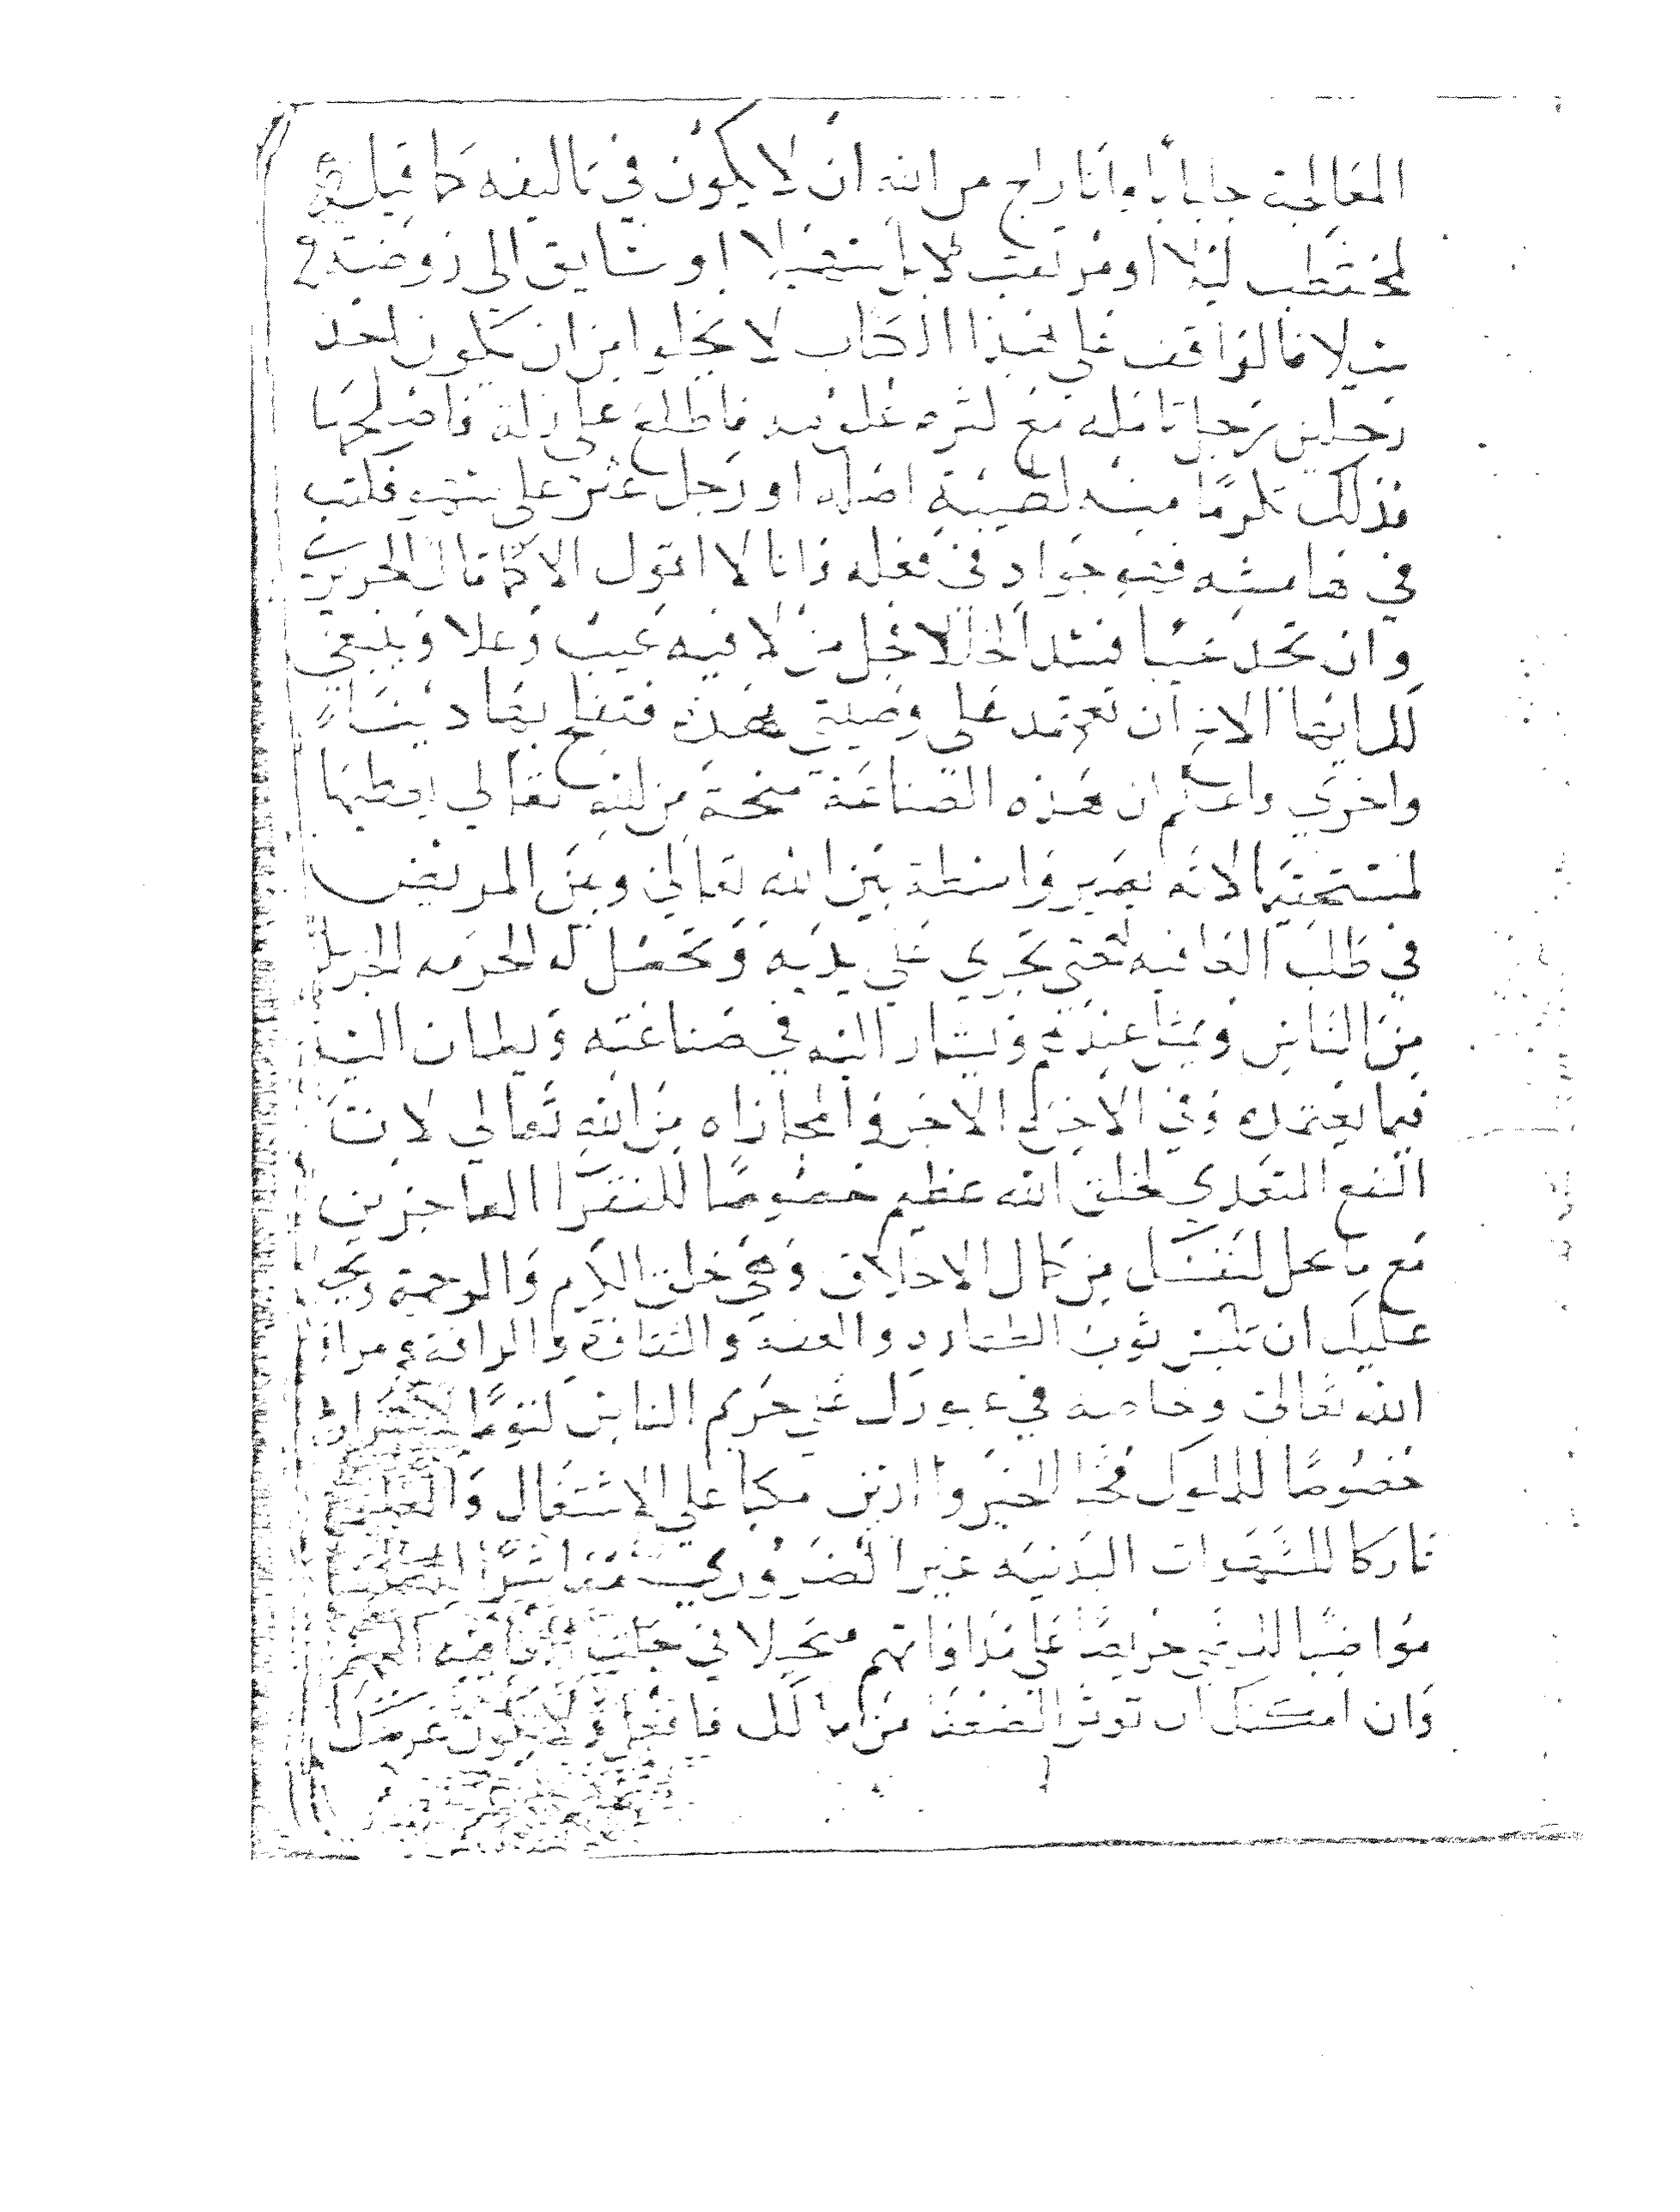 المعالجة بابا بابا وانا راج من الله ان لا يكون في تاليفه كما قيل
كمحتطب ليلا او مرتقب لا سهيلا او سايق الى روضة
سيلا فالواقف على هذا الكتاب لا يخلو امن ان يكون احد
رجلين رجل تامله مع فاطلع على زلة فاصلحها
فذلك تكرما منه لطيبة اصله او رجل عثر على فكتب
في هامشه فهو جواد في فعله وانا لا اقول الا كما قال الحريري
وان تجد عيبا فسد الخللا فجل من لا فيه عيب وعلا وينبغي
لك ايها الاخ ان تعتمد على وصيتي هذه فتفلح بها دنيا
واخرى واعلم ان هذه الصناعة منحة من الله تعالى يعطيها
لمستحقيها لانه يصير واسطة بين الله تعالى وبين المريض
في طلب العافيه حتى تجري على يديه وتحصل له الحرمه الجزيلة
من الناس ويشار اليه في صناعته ويطمان اليه
فيما يعتمده وفي الاخرة الاجر والمجازاه من الله تعالى لان
النفع المتعدي لخلق الله عظيم خصوصا للفقرا العاجزين
مع ما يحصل لنفسك من كمال الاخلاق وهي خلق الكرم والرحمة ويجب
عليك ان تلبس ثوب الطهاره والعفة والنقاوة والرافة ومراقبة
الله تعالى وخاصة في عبورك على حريم الناس كتوما لاسرارهم
خصوصا للملوك محبا للخير والدين مكبا على الاشتغال والعلم
تاركا للشهوات البدنيه غير الضروري معاشرا للعلما
مواضبا للمرضى حريصا على مداواتهم متحيلا في جلب العافيه اليهم
وان امكنك ان توثر الضعفا من مالك فافعل ولا يكون غرضك